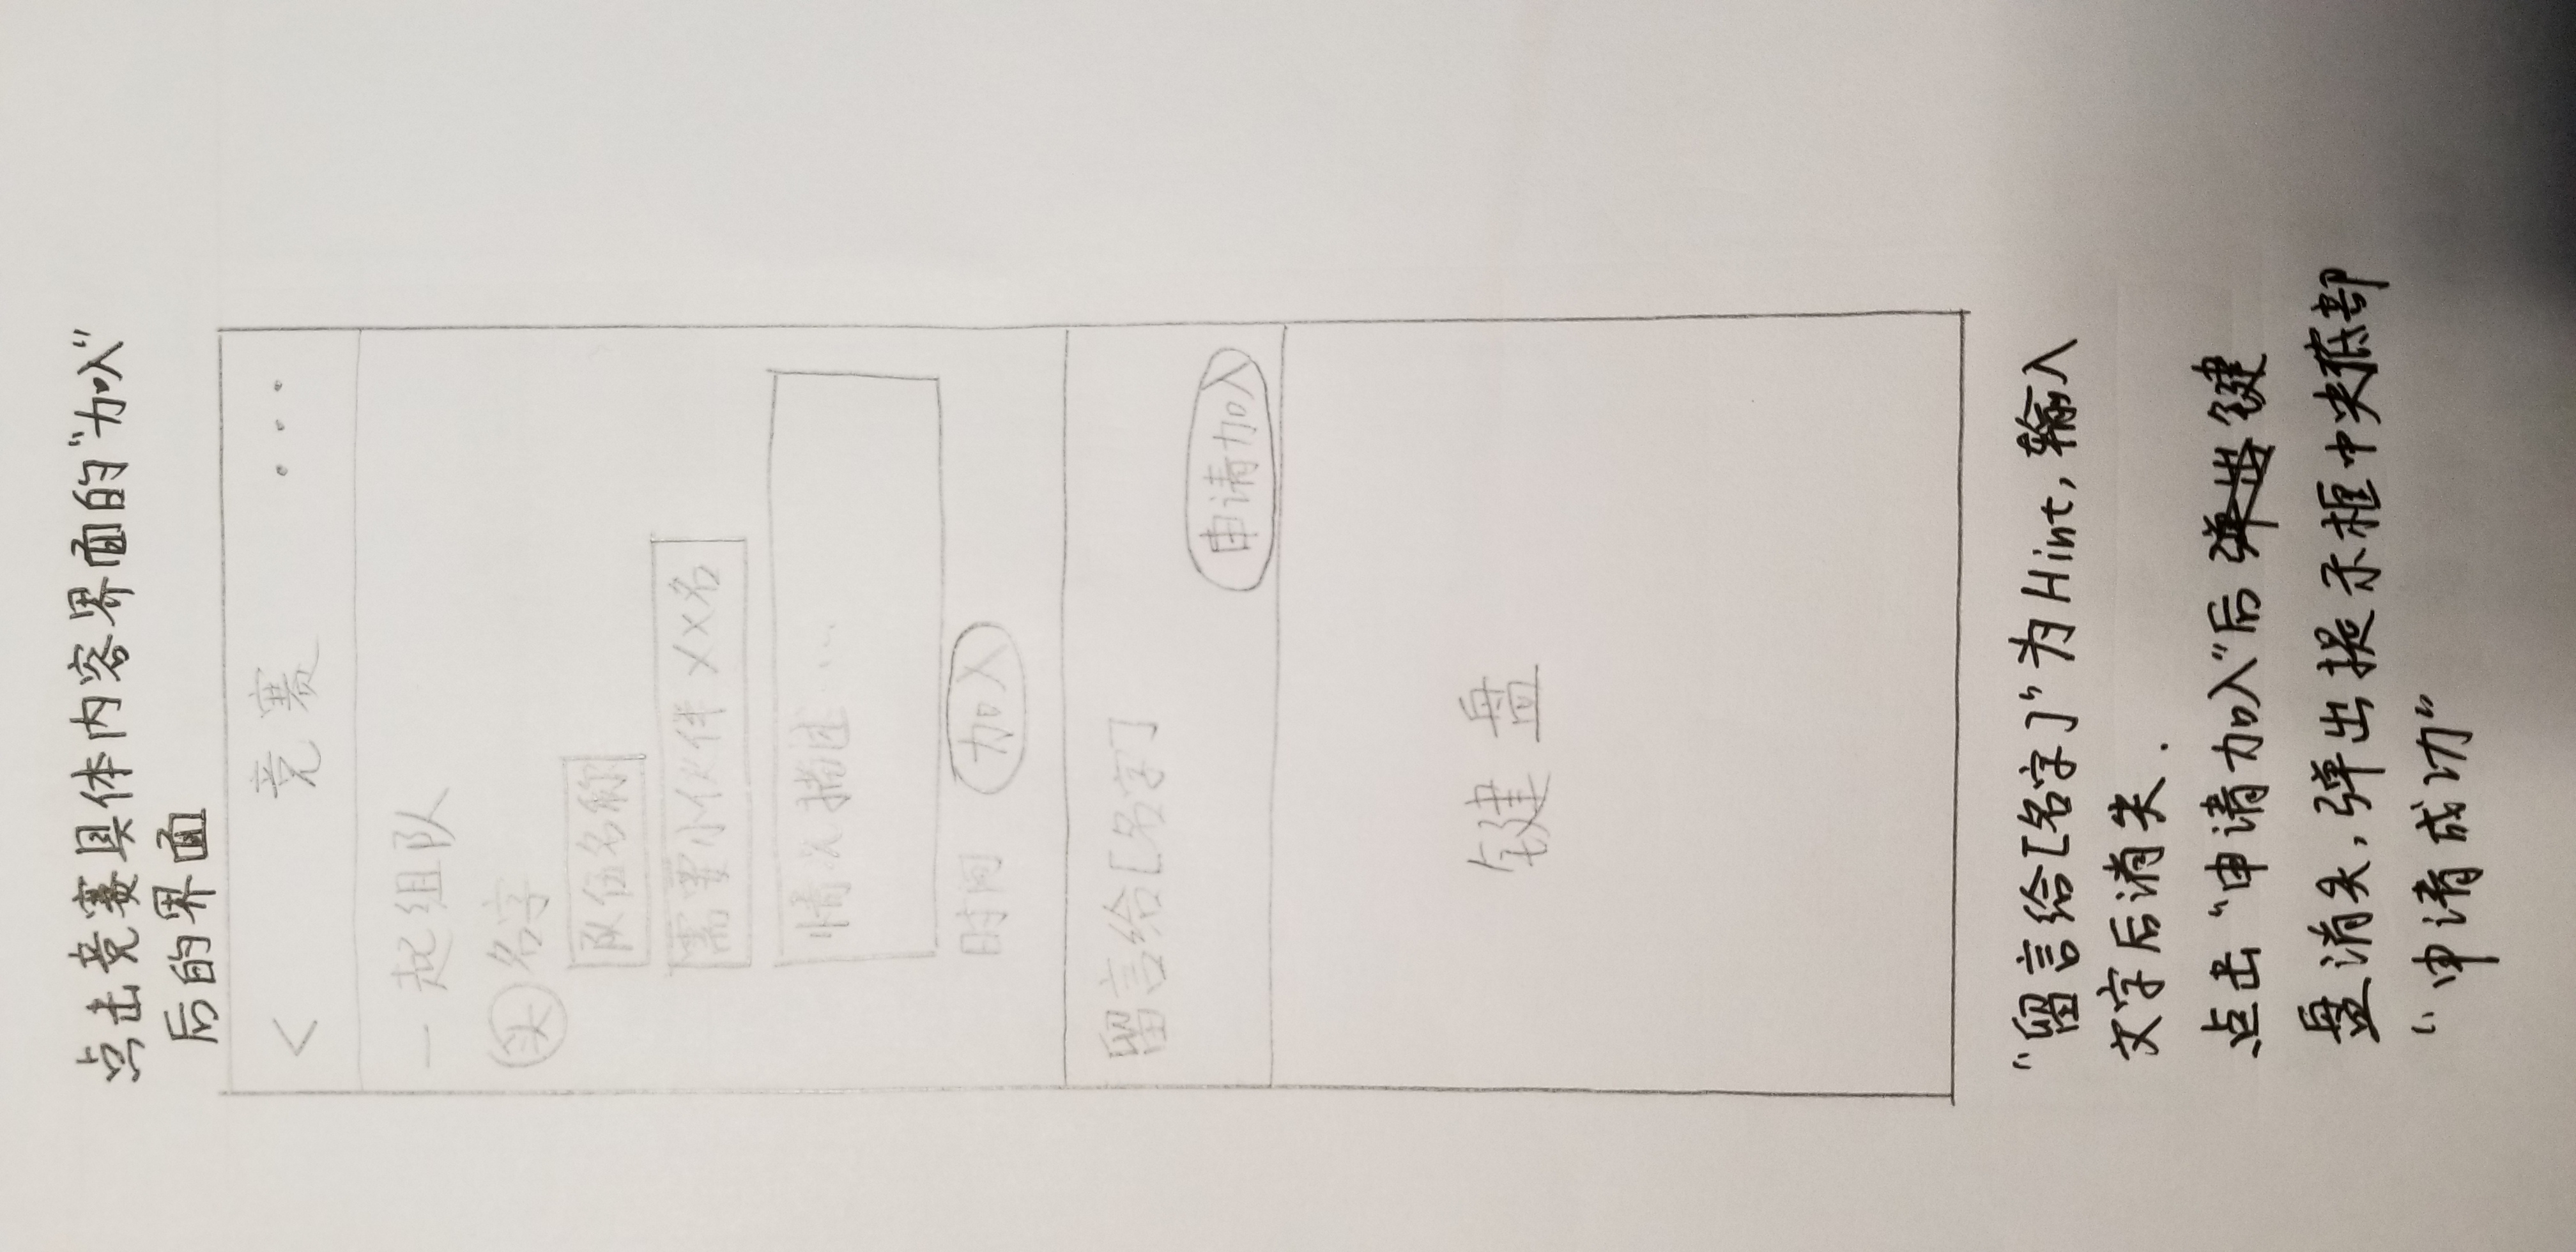 点击竞赛具体内容界面的"加入"
后的界面
< 竞赛 ...
一起组队
头 名字
队伍名称
需要小伙伴 XX名
情况描述...
时间 加入
留言给[名字]
申请加入
键盘
"留言给[名字]"为Hint,输入
文字后消失.
点击"申请加入"后弹出键
盘消失,弹出提示框中央底部
"申请成功"